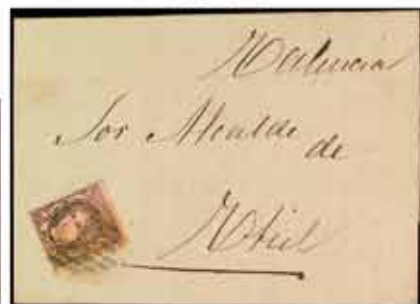 Valencia
Sor Alcalde
de
Utiel